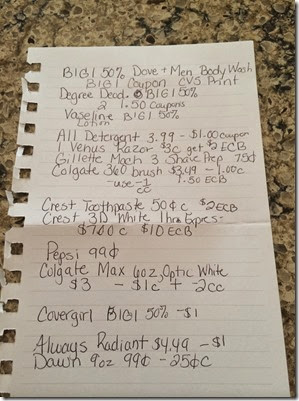 B1G1 50% Dove + Men Body Wash
B1G1 Coupon CVS Print
Degree Deod. B1G1 50%
2 1.50 Coupons
Vaseline B1G1 50%
Lotion
All Detergent 3.99 - $1.00 coupon
1 Venus Razor $3c get $2 ECB
Gillette Mach 3 Shave Prep 75¢
Colgate 360 brush $3.49 - 1.00c
-use 1/cc 1.50 ECB
Crest Toothpaste 50¢ c $2 ECB
Crest 3D White 1 hr Expres-
c $10 ECB
Pepsi 99¢
Colgate Max 6oz, Optic White
$3 - $1c + -2cc
Covergirl B1G1 50% -$1
Always Radiant $4.49 - $1
Dawn 9oz 99¢ - 25¢c